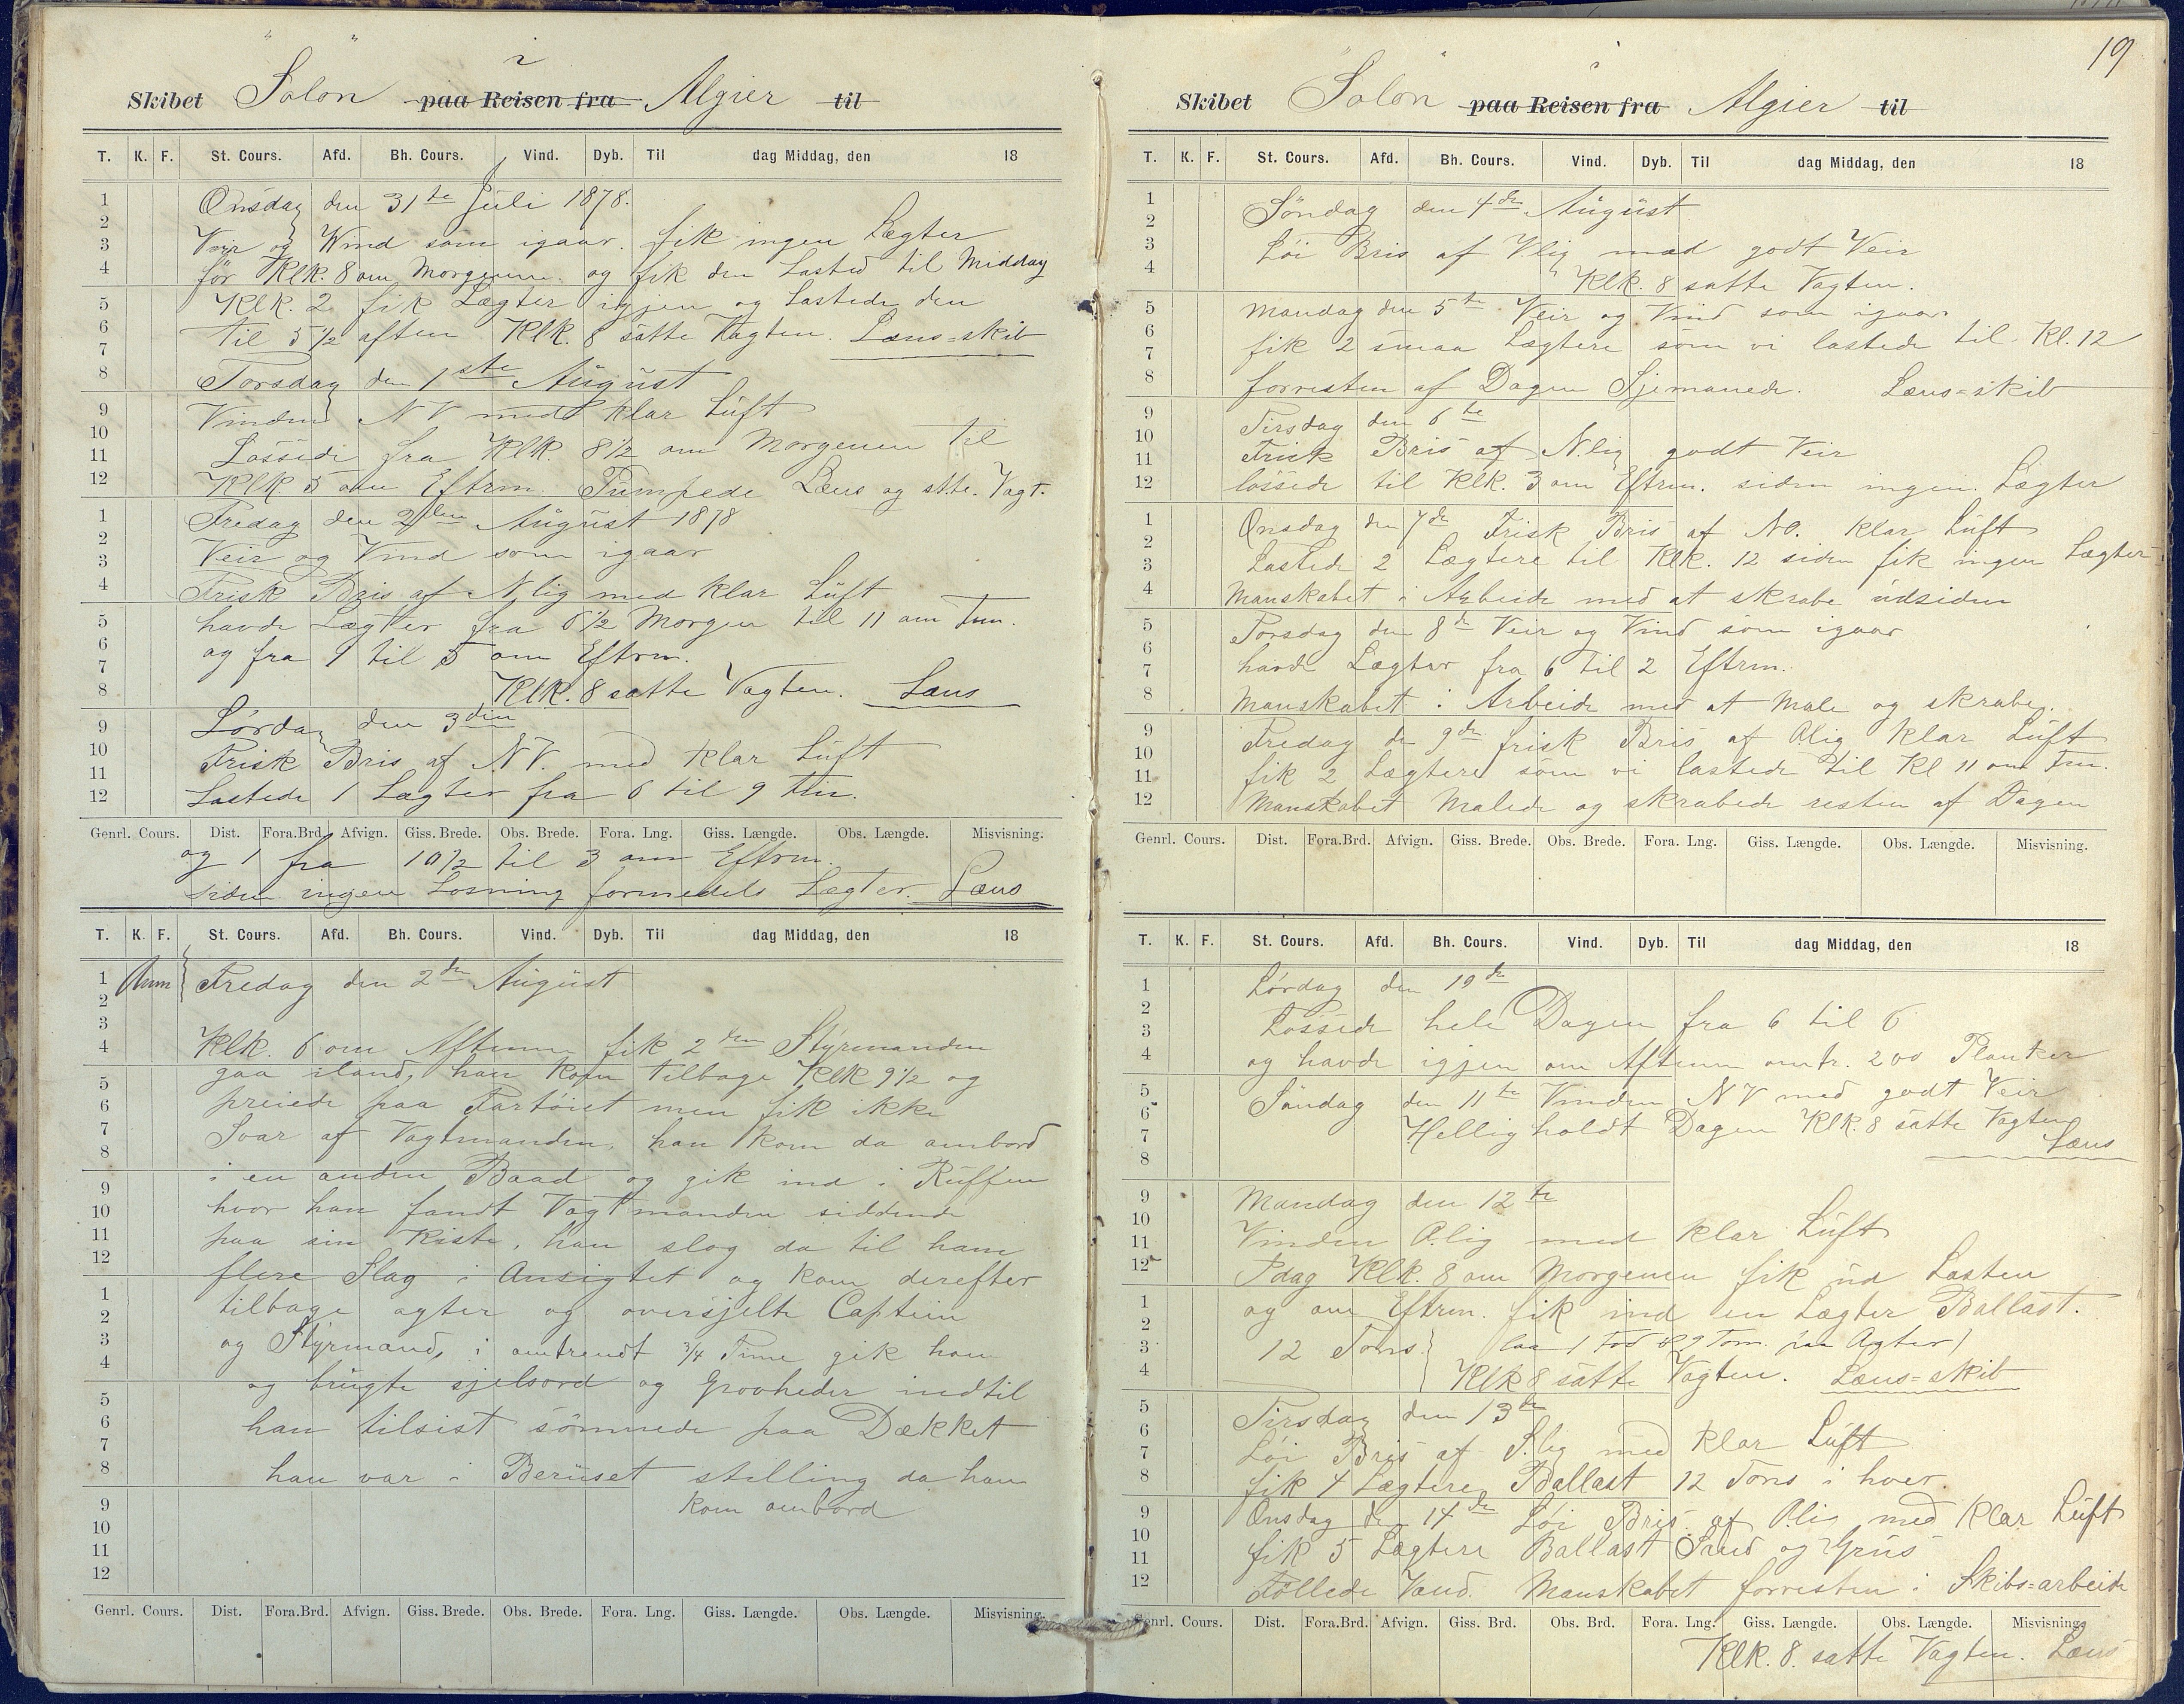 Skibet "Solon" i paa Reisen fra Algier til
T. K. F. St. Cours. Afd. Bh. Cours. Vind. Dyb. Til dag Middag, den 18
Onsdag den 31te Juli 1878.
Veir og Wind som igaar. fik ingen Lægter
før Klk. 8 om Morgenen. og fik den Lasted til Middag
Klk. 2 fik Lægter igjen og Lastede den
til 5 1/2 aften Klk. 8 satte Vagten. Læns=skib
Torsdag den 1ste August
Vinden NV med klar Luft
Lossede fra Klk. 8 1/2 om Morgenen til
Klk 5 om Eftrm. Pumpede Læns og satte Vagt.
Fredag den 2den August 1878
Veir og Vind som igaar
Frisk Bris af Nlig med klar Luft
havde Lægter fra 6 1/2 Morgen til 11 om Fm.
og fra 1 til 5 om Eftrm.
Klk. 8 satte Vagten. Læns
Lørdag den 3die
Frisk Bris af NV. med klar Luft
Lastede 1 Lægter fra 6 til 9 Fm.
Genrl. Cours. Dist. Fora.Brd. Afvign. Giss. Brede. Obs. Brede. Fora. Lng. Giss. Længde. Obs. Længde. Misvisning.
og 1 fra 10 1/2 til 3 om Eftrm.
siden ingen Losning formedels Lægter. Læns
T. K. F. St. Cours. Afd. Bh. Cours. Vind. Dyb. Til dag Middag, den 18
Anm Fredag den 2den August
Klk. 6 om Aftenen fik 2den Styrmanden
gaa iland, han kom tilbage Klk 9 1/2 og
preiede paa Fartøiet men fik ikke
Svar af Vagtmanden, han kom da ombord
i en anden Baad og gik ind i Ruffen
hvor han fandt Vagtmanden siddende
paa sin Kiste, han slog da til ham
flere Slag i Ansigtet og kom derefter
tilbage agter og oversjelte Captein
og Styrmand, i omtrendt 3/4 Time gik han
og brugte sjelsord og Grovheder indtil
han tilsist sømnede paa Dækket
han var i Beruset stilling da han
kom ombord
Genrl. Cours. Dist. Fora.Brd. Afvign. Giss. Brede. Obs. Brede. Fora. Lng. Giss. Længde. Obs. Længde. Misvisning.
19
Skibet "Solon" i paa Reisen fra Algier til
T. K. F. St. Cours. Afd. Bh. Cours. Vind. Dyb. Til dag Middag, den 18
Søndag den 4de August
Løi Bris af Vlig med godt Veir
Klk. 8 satte Vagten.
Mandag den 5te Veir og Vind som igaar
fik 2 smaa Lægtere som vi lastede til Kl. 12
forresten af Dagen Sjemanede. Læns=skib
Tirsdag den 6te
Frisk Bris af Nlig godt Veir
lossede til Klk. 3 om Eftrm. siden ingen Lægter
Onsdag den 7de Frisk Bris af NO. klar Luft
Lastede 2 Lægtere til Klk. 12 siden fik ingen Lægter
Manskabet i Arbeide med at skrabe udsiden
Torsdag den 8de Veir og Vind som igaar
havde Lægter fra 6 til 2 Eftrm.
Manskabet i Arbeide med at Male og skrabe.
Fredag den 9de frisk Bris af Olig klar Luft
fik 2 Lægtere som vi lastede til Kl 11 om Fm.
Manskabet Malede og skrabede resten af Dagen
Genrl. Cours. Dist. Fora.Brd. Afvign. Giss. Brede. Obs. Brede. Fora. Lng. Giss. Længde. Obs. Længde. Misvisning.
T. K. F. St. Cours. Afd. Bh. Cours. Vind. Dyb. Til dag Middag, den 18
Lørdag den 10de
Lossede hele Dagen fra 6 til 6
og havde igjen om Aftenen omtr. 200 Planker
Søndag den 11te Vinden NV med godt Veir
Hellig holdt Dagen Klk. 8 satte Vagten
Læns
Mandag den 12te
Vinden Olig med klar Luft
Idag Klk. 8 om Morgenen fik ud Lasten
og om Eftrm. fik ind en Lægter Ballast.
12 Tons. laa 1 Fod & 9 Tom. paa Agter
Klk 8 satte Vagten. Læns=skib
Tirsdag den 13de
Løi Bris af Slig med klar Luft
fik 4 Lægtere Ballast 12 Tons i hver
Onsdag den 14de Løi Bris af Olig med klar Luft
fik 5 Lægtere Ballast Sand og Grus
Føllede Vand. Manskabet forresten i Skibs=arbeide
Genrl. Cours. Dist. Fora.Brd. Afvign. Giss. Brd. Obs. Brd. Fora. Lng. Giss. Længde. Obs. Længde. Misvisning.
Klk. 8. satte Vagten. Læns